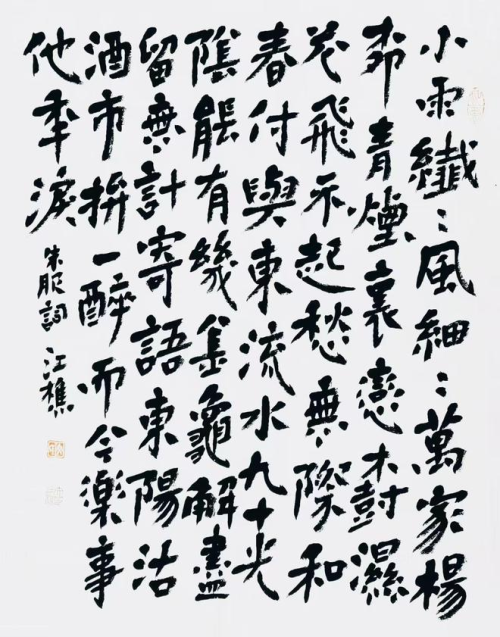 小雨纖〻風細〻萬家楊
桺青煙裏戀樹濕
花飛不起愁無際和
春付與東流水九十光
陰能有幾金龜解盡
留無計寄語東陽沽
酒市拚一醉而今樂事
他秊淚
朱服詞 江樵